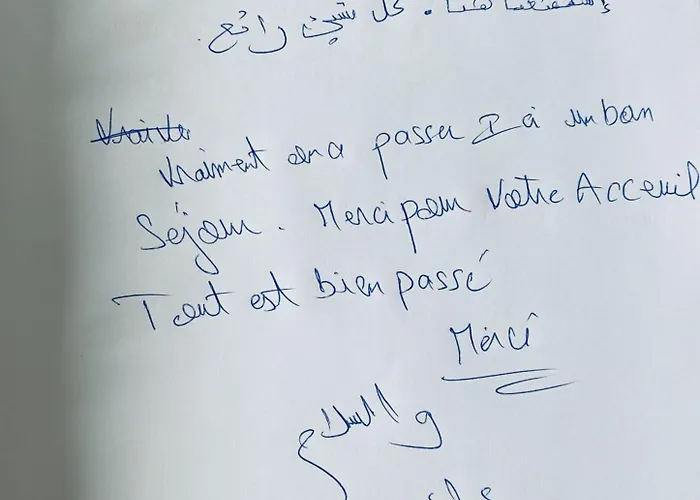 إستمتعنا هنا . كل شيئ رائع .
Vraiment on a passer I à un bon
Séjour . Merci pour Votre Acceuil
Tout est bien passé
Merci
والسلام